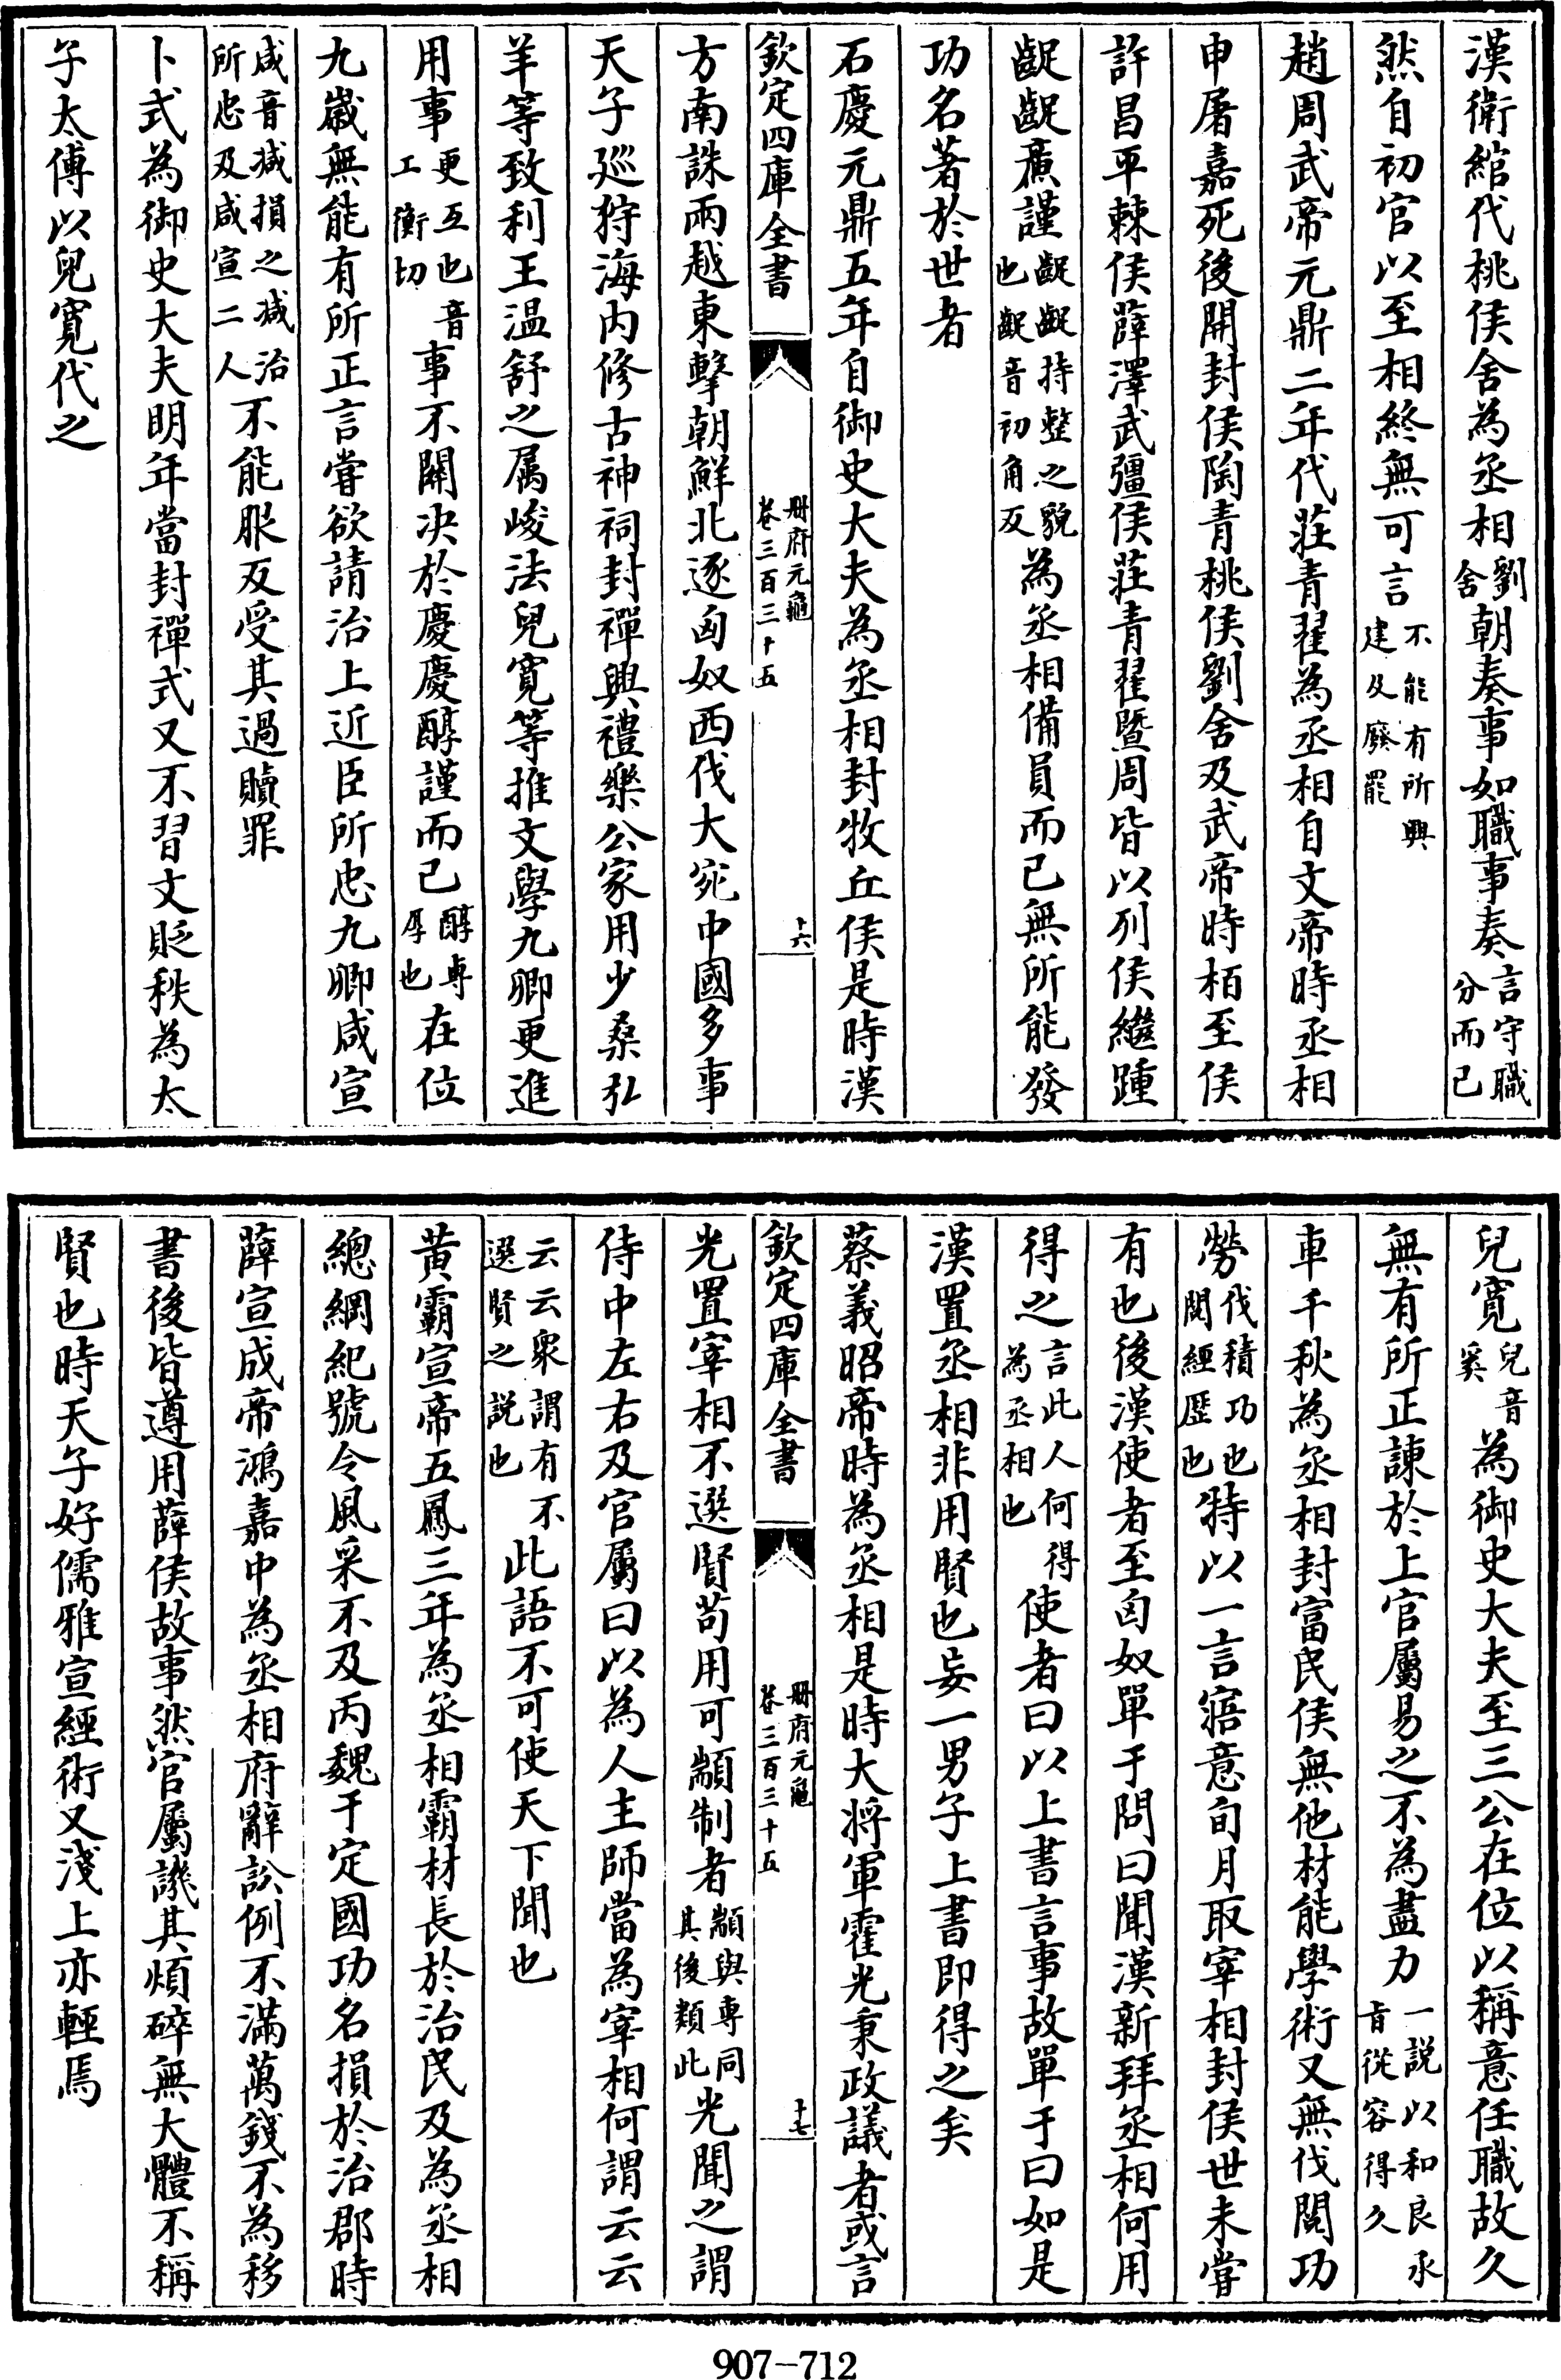 漢衛綰代桃侯舍為丞相劉舍朝奏事如職事奏言守職分而已
然自初官以至相終無可言不能有所興建及廢罷
趙周武帝元鼎二年代莊青翟為丞相自文帝時丞相
申屠嘉死後開封侯陶青桃侯劉舍及武帝時栢至侯
許昌平棘侯薛澤武彊侯莊青翟暨周皆以列侯繼踵
齪齪廉謹齪齪持整之貌也齪音初角反為丞相備員而已無所能發
功名著於世者
石慶元鼎五年自御史大夫為丞相封牧丘侯是時漢
欽定四庫全書
冊府元龜
卷三百三十五
十六
方南誅兩越東擊朝鮮北逐匈奴西伐大宛中國多事
天子廵狩海內修古神祠封禪興禮樂公家用少桑弘
羊等致利王温舒之属峻法兒寛等推文學九卿更進
用事更互也音工衡切事不關决於慶慶醇謹而已醇專厚也在位
九嵗無能有所正言嘗欲請治上近臣所忠九卿咸宣
咸音减損之减治所忠及咸宣二人不能服反受其過贖罪
卜式為御史大夫明年當封禪式又不習文貶秩為太
子太傅以兒寛代之
兒寛兒音奚為御史大夫至三公在位以稱意任職故久
無有所正諫於上官屬易之不為盡力一説以和良承旨從容得久
車千秋為丞相封富民侯無他材能學術又無伐閱功
勞伐積功也閱經歴也特以一言寤意旬月取宰相封侯世未嘗
有也後漢使者至匈奴單于問曰聞漢新拜丞相何用
得之言此人何得為丞相也使者曰以上書言事故單于曰如是
漢置丞相非用賢也妄一男子上書即得之矣
蔡義昭帝時為丞相是時大將軍霍光秉政議者或言
欽定四庫全書
冊府元龜
卷三百三十五
十七
光置宰相不選賢苟用可顓制者顓與專同其後類此光聞之謂
侍中左右及官屬曰以為人主師當為宰相何謂云云
云云衆謂有不選賢之説也此語不可使天下聞也
黄霸宣帝五鳳三年為丞相霸材長於治民及為丞相
總綱紀號令風采不及丙魏于定國功名損於治郡時
薛宣成帝鴻嘉中為丞相府辭訟例不滿萬錢不為移
書後皆遵用薛侯故事然官屬譏其煩碎無大體不稱
賢也時天子好儒雅宣經術又淺上亦輕焉
907-712